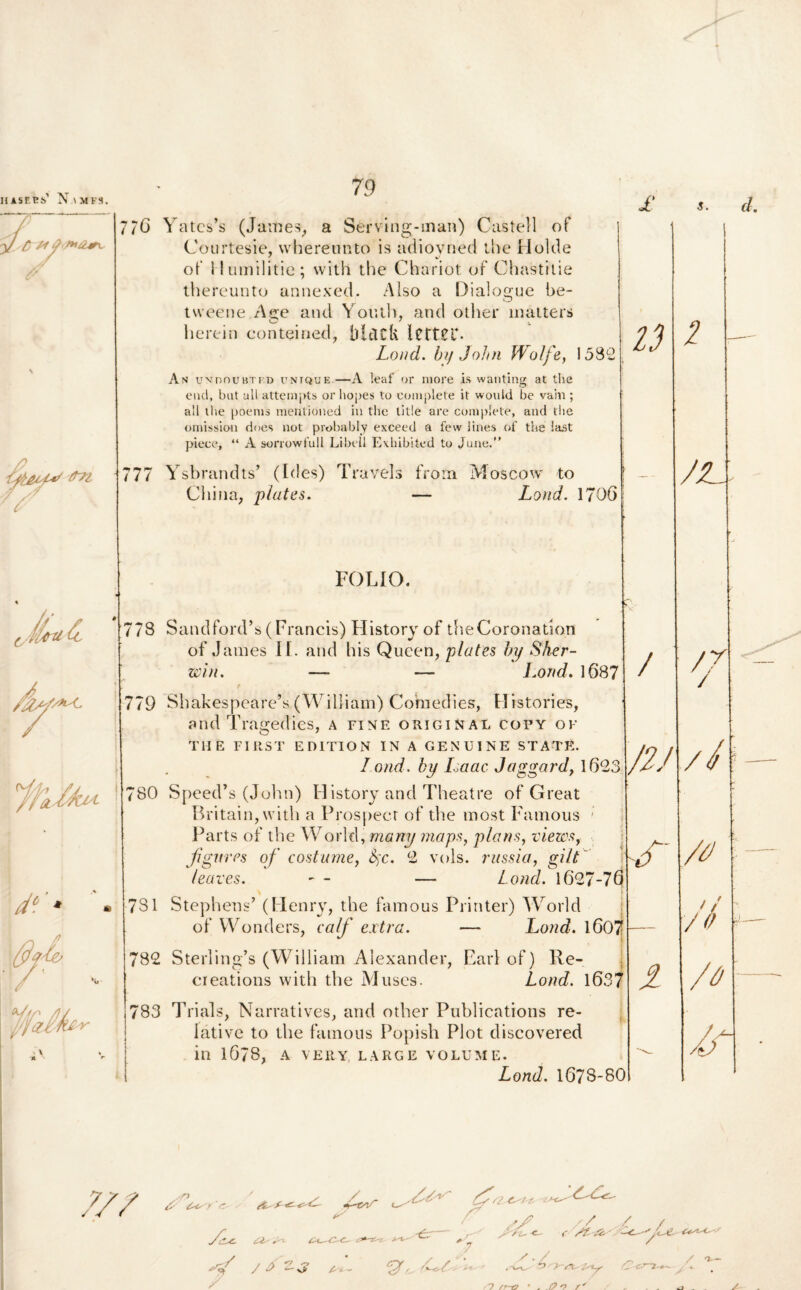 79
HASERS' NAMES.
£ s. d.
776 Yates's (James, a Serving-man) Castell of
Courtesie, whereunto is adioyned the Holde
of Humilitie; with the Chariot of Chastitie
thereunto annexed. Also a Dialogue be-
tweene Age and Youth, and other matters
herein conteined, black letter.
Lond. by John Wolfe, 1582
23 2 —
AN UNDOUBTED UNIQUE.—A leaf or more is wanting at the
end, but all attempts or hopes to complete it would be vain;
all the poems mentioned in the title are complete, and the
omission does not probably exceed a few lines of the last
piece, “ A sorrowfull Libell Exhibited to June.”
777 Ysbrandts' (Ides) Travels from Moscow to
China, plates. — Lond. 1706
— 12
FOLIO.
778 Sandford's (Francis) History of the Coronation
of James II. and his Queen, plates by Sher-
win. — — Lond. 1687
1 17 —
779 Shakespeare's (William) Comedies, Histories,
and Tragedies, A FINE ORIGINAL COPY OF
THE FIRST EDITION IN A GENUINE STATE.
Lond. by Isaac Jaggard, 1623
121 16 —
Walker
780 Speed's (John) History and Theatre of Great
Britain, with a Prospect of the most Famous
Parts of the World, many maps, plans, views,
figures of costume, &c. 2 vols. russia, gilt
leaves. - - — Lond. 1627-76
5 10 —
do
781 Stephens' (Henry, the famous Printer) World
of Wonders, calf extra. — Lond. 1607
— 16 —
782 Sterling's (William Alexander, Earl of) Re-
creations with the Muses. Lond. 1637
2 10 —
Walker
783 Trials, Narratives, and other Publications re-
lative to the famous Popish Plot discovered
in 1678, A VERY LARGE VOLUME.
Lond. 1678-80
— 15
777